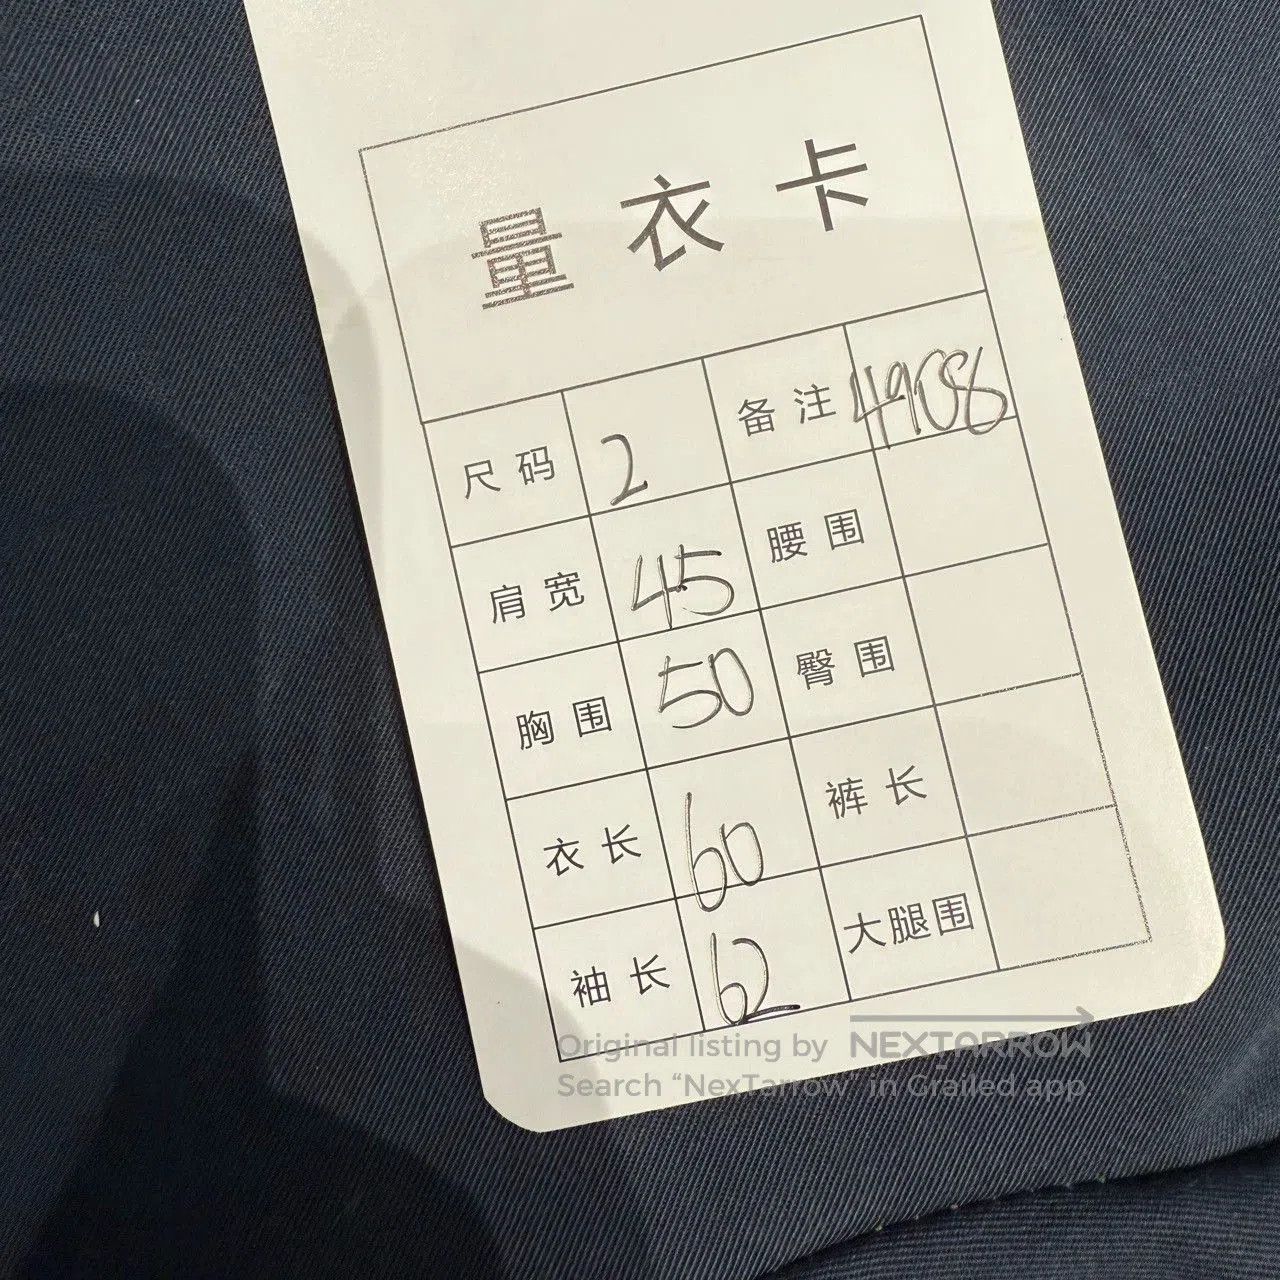 量衣卡
尺码 2 备注 4908
肩宽 45 腰围
胸围 50 臀围
衣长 60 裤长
袖长 62 大腿围
Original listing by NEXTARROW
Search “NexTarrow” in Grailed app